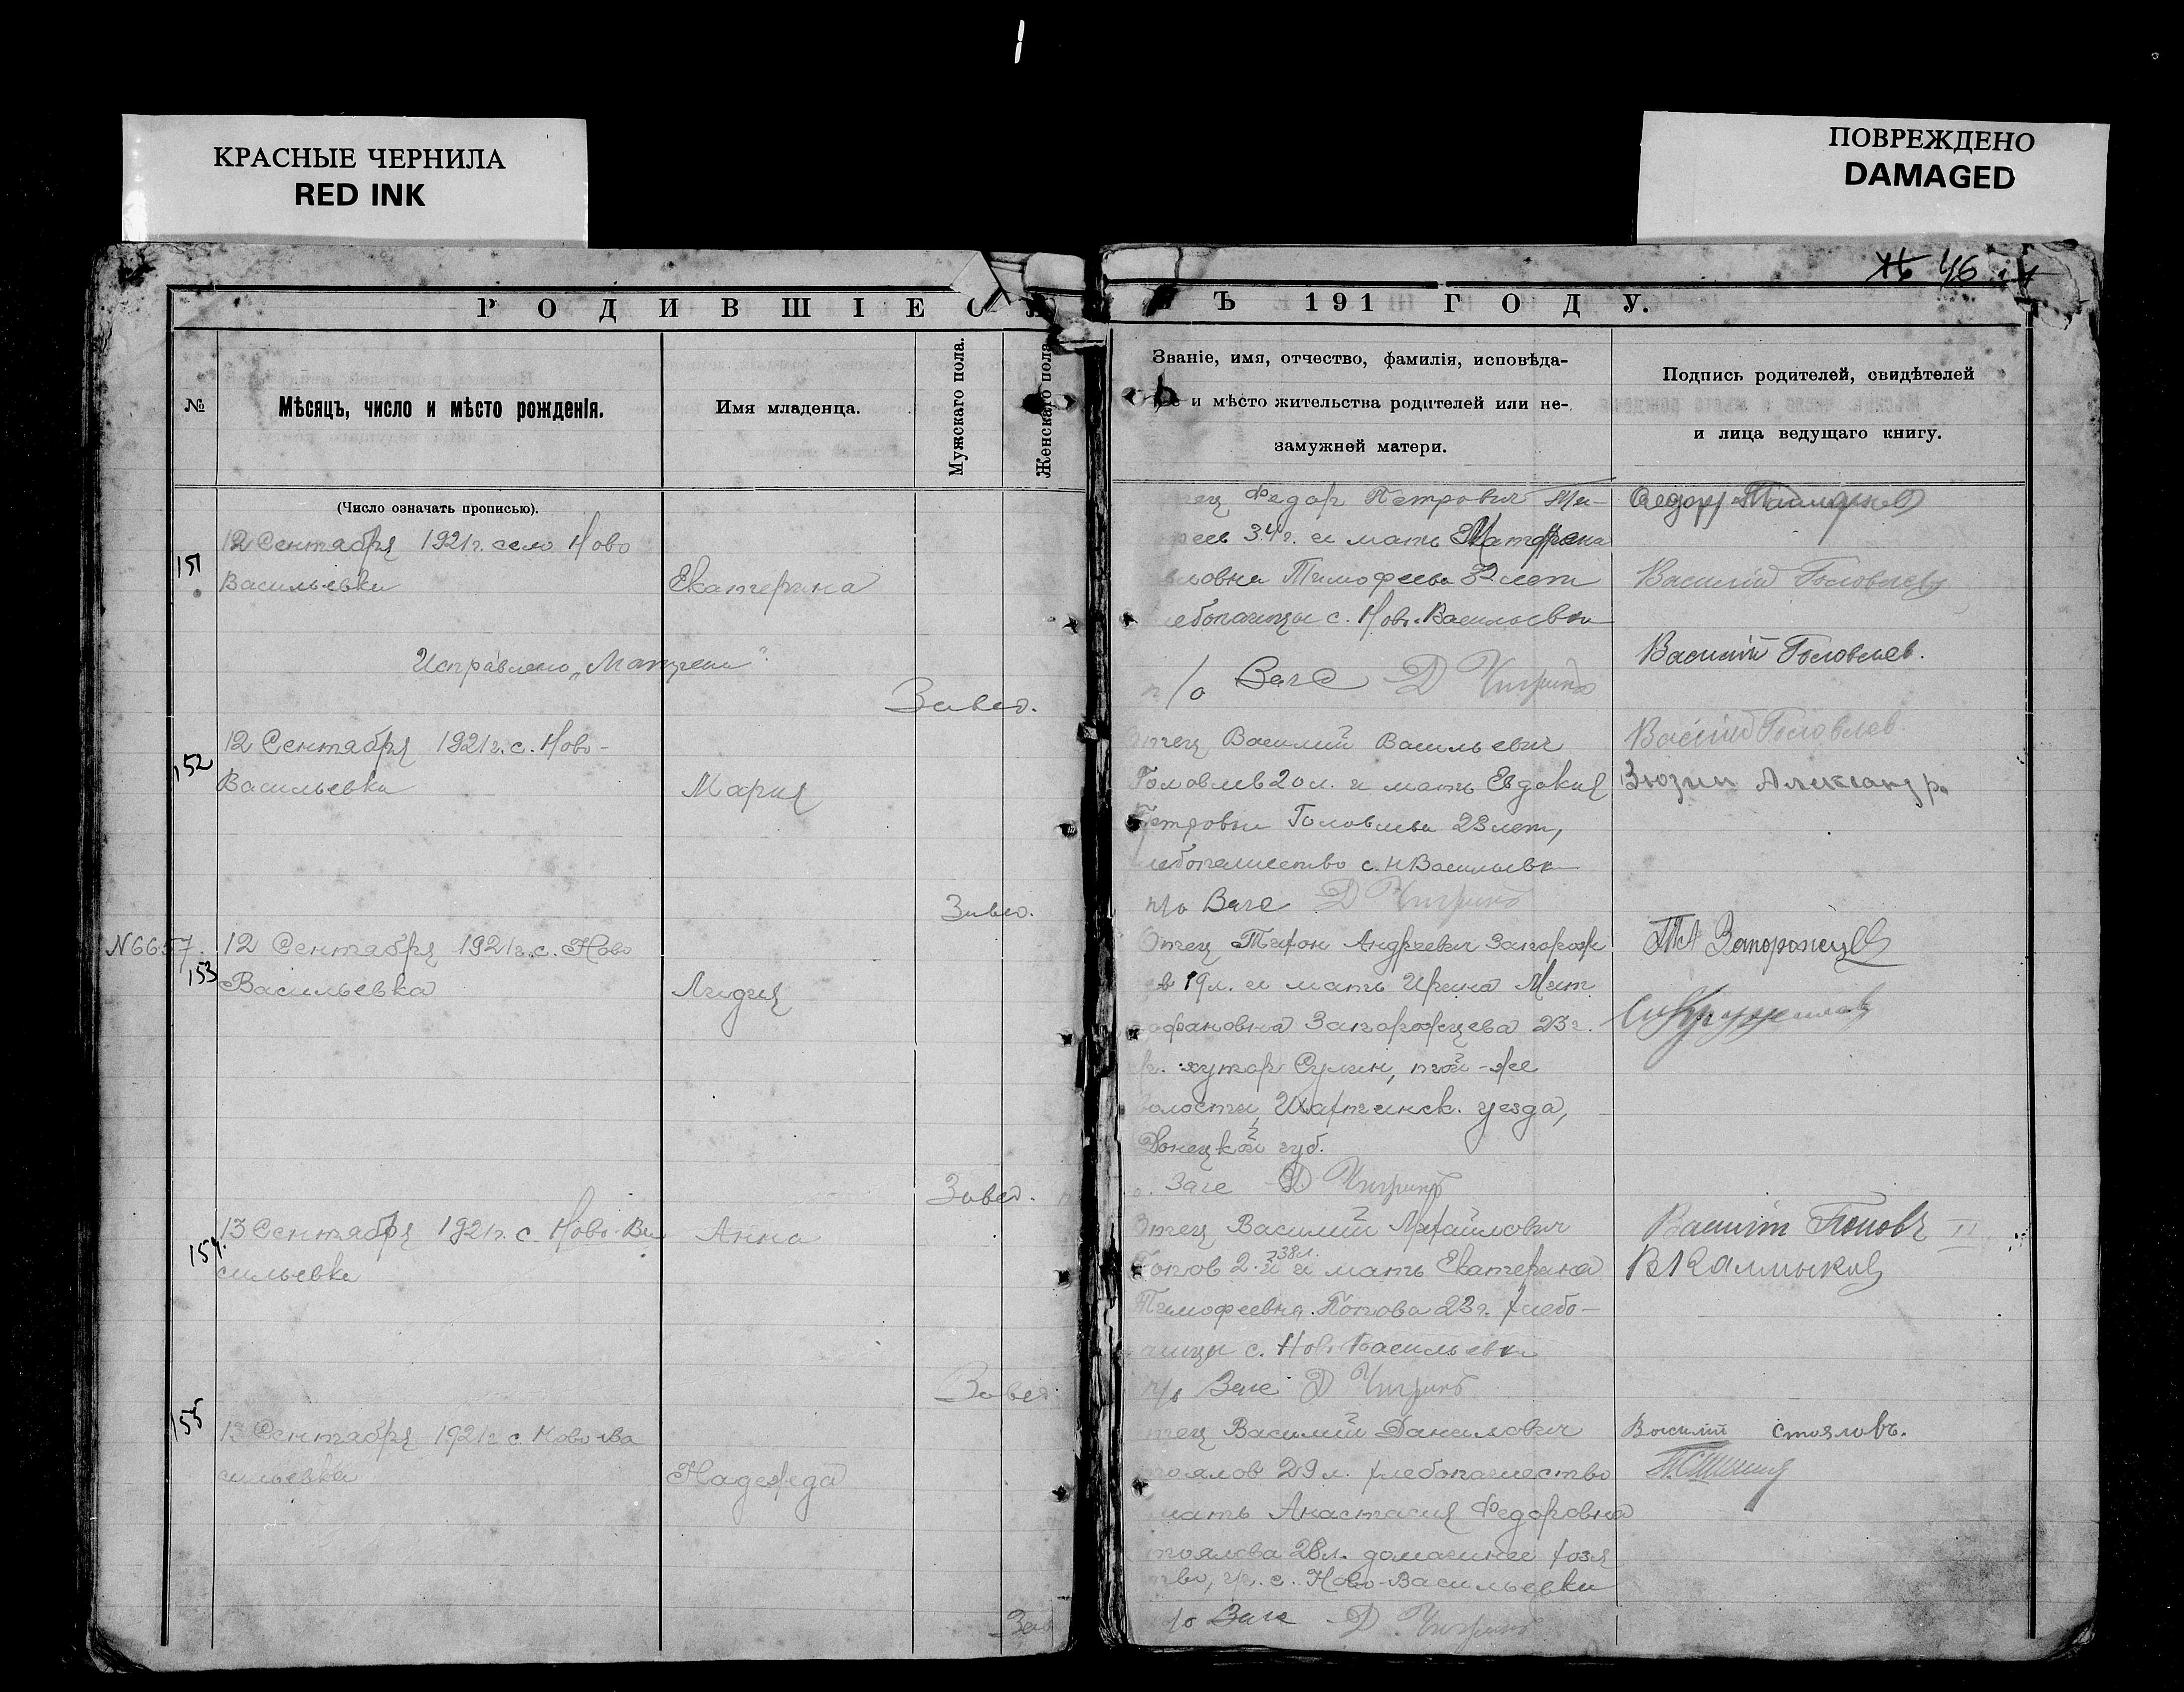 КРАСНЫЕ ЧЕРНИЛА
RED INK
ПОВРЕЖДЕНО
DAMAGED
46
РОДИВШІЕС
Ъ 191 ГОДУ.
№
Мѣсяцъ, число и мѣсто рожденія.
Имя младенца.
Мужскаго пола.
Женскаго пола
Званіе, имя, отчество, фамилія, исповѣда-
и мѣсто жительства родителей или не-
замужней матери.
Подпись родителей, свидѣтелей
и лица ведущаго книгу.
(Число означать прописью).
151
12 Сентября 1921 г. село Ново
Васильевка
Екатерина
Исправлено „Матрена"
Завед.
Федор Петрович Ти-
34 г. и мать Матрена
Тимофеева 32 лет
с. Ново-Васильевки
п/о Заге Д Чигринъ
Василий Головлев
Василий Головлев.
152
12 Сентября 1921 г. с. Ново-
Васильевка
Мария
Завед.
Отец Василий Васильевич
Головлев 20 л. и мать Евдокия
Петровна Головлева 23 лет,
хлебопашество с. Н Васильевк
п/о Заге Д Чигринъ
Василий Головлев
Зюзин Александр
N6657.
153
12 Сентября 1921 г. с. Ново
Васильевка
Лидия
Завед.
Отец Тихон Андреевич Запорож
ев 19 л. и мать Ирина Мит
рофановна Запорожцева 23 г.
гр. хутор Сулин, той-же
волости, Шахтинск. уезда,
Донецкой губ.
Заге Д Чигринъ
ТА Запорожцев
154.
13 Сентября 1921 г. с. Ново-Ва
сильевка
Анна
Завед
Отец Василий Михайлович
Попов 2-й 38 л. и мать Екатерина
Тимофеевна Попова 23 г. хлебо-
пашцы с. Ново Васильевки
п/о Заге Д Чигринъ
Василий Поповъ II
В Калмыков
155
13 Сентября 1921 г. с. Ново-Ва
сильевка
Надежда
Зав
Отец Василий Данилович
тоялов 29 л. хлебопашество
мать Анастасия Федоровна
тоялова 28 л. домашнее хозя
тво, гр. с. Ново-Васильевки
/о Заге Д Чигринъ
Василий Стояловъ.